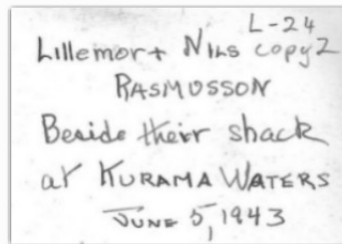 L-24
Lillemor + Nils copy 2
RASMUSSON
Beside their shack
at KURAMA WATERS
JUNE 5, 1943